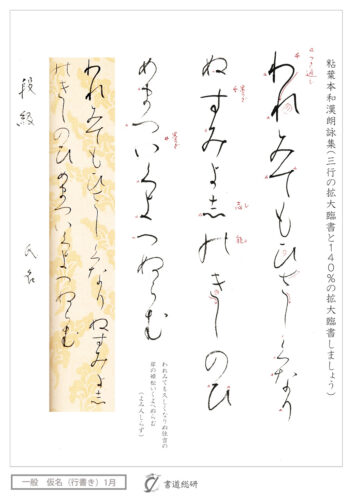 粘葉本和漢朗詠集(三行の拡大臨書と140%の拡大臨書しましょう)
われみてもひさしくなり
ぬすみよ志能きしのひ
し
能
めまついくよへぬらむ
われみても久しくなりぬ住吉の
岸の姫松いくよへぬらむ
(よみんしらず)
われみてもひさしくなりぬすみよ志
能きしのひめまついくよへぬらむ
段級 氏名
一般 仮名(行書き)1月
書道総研